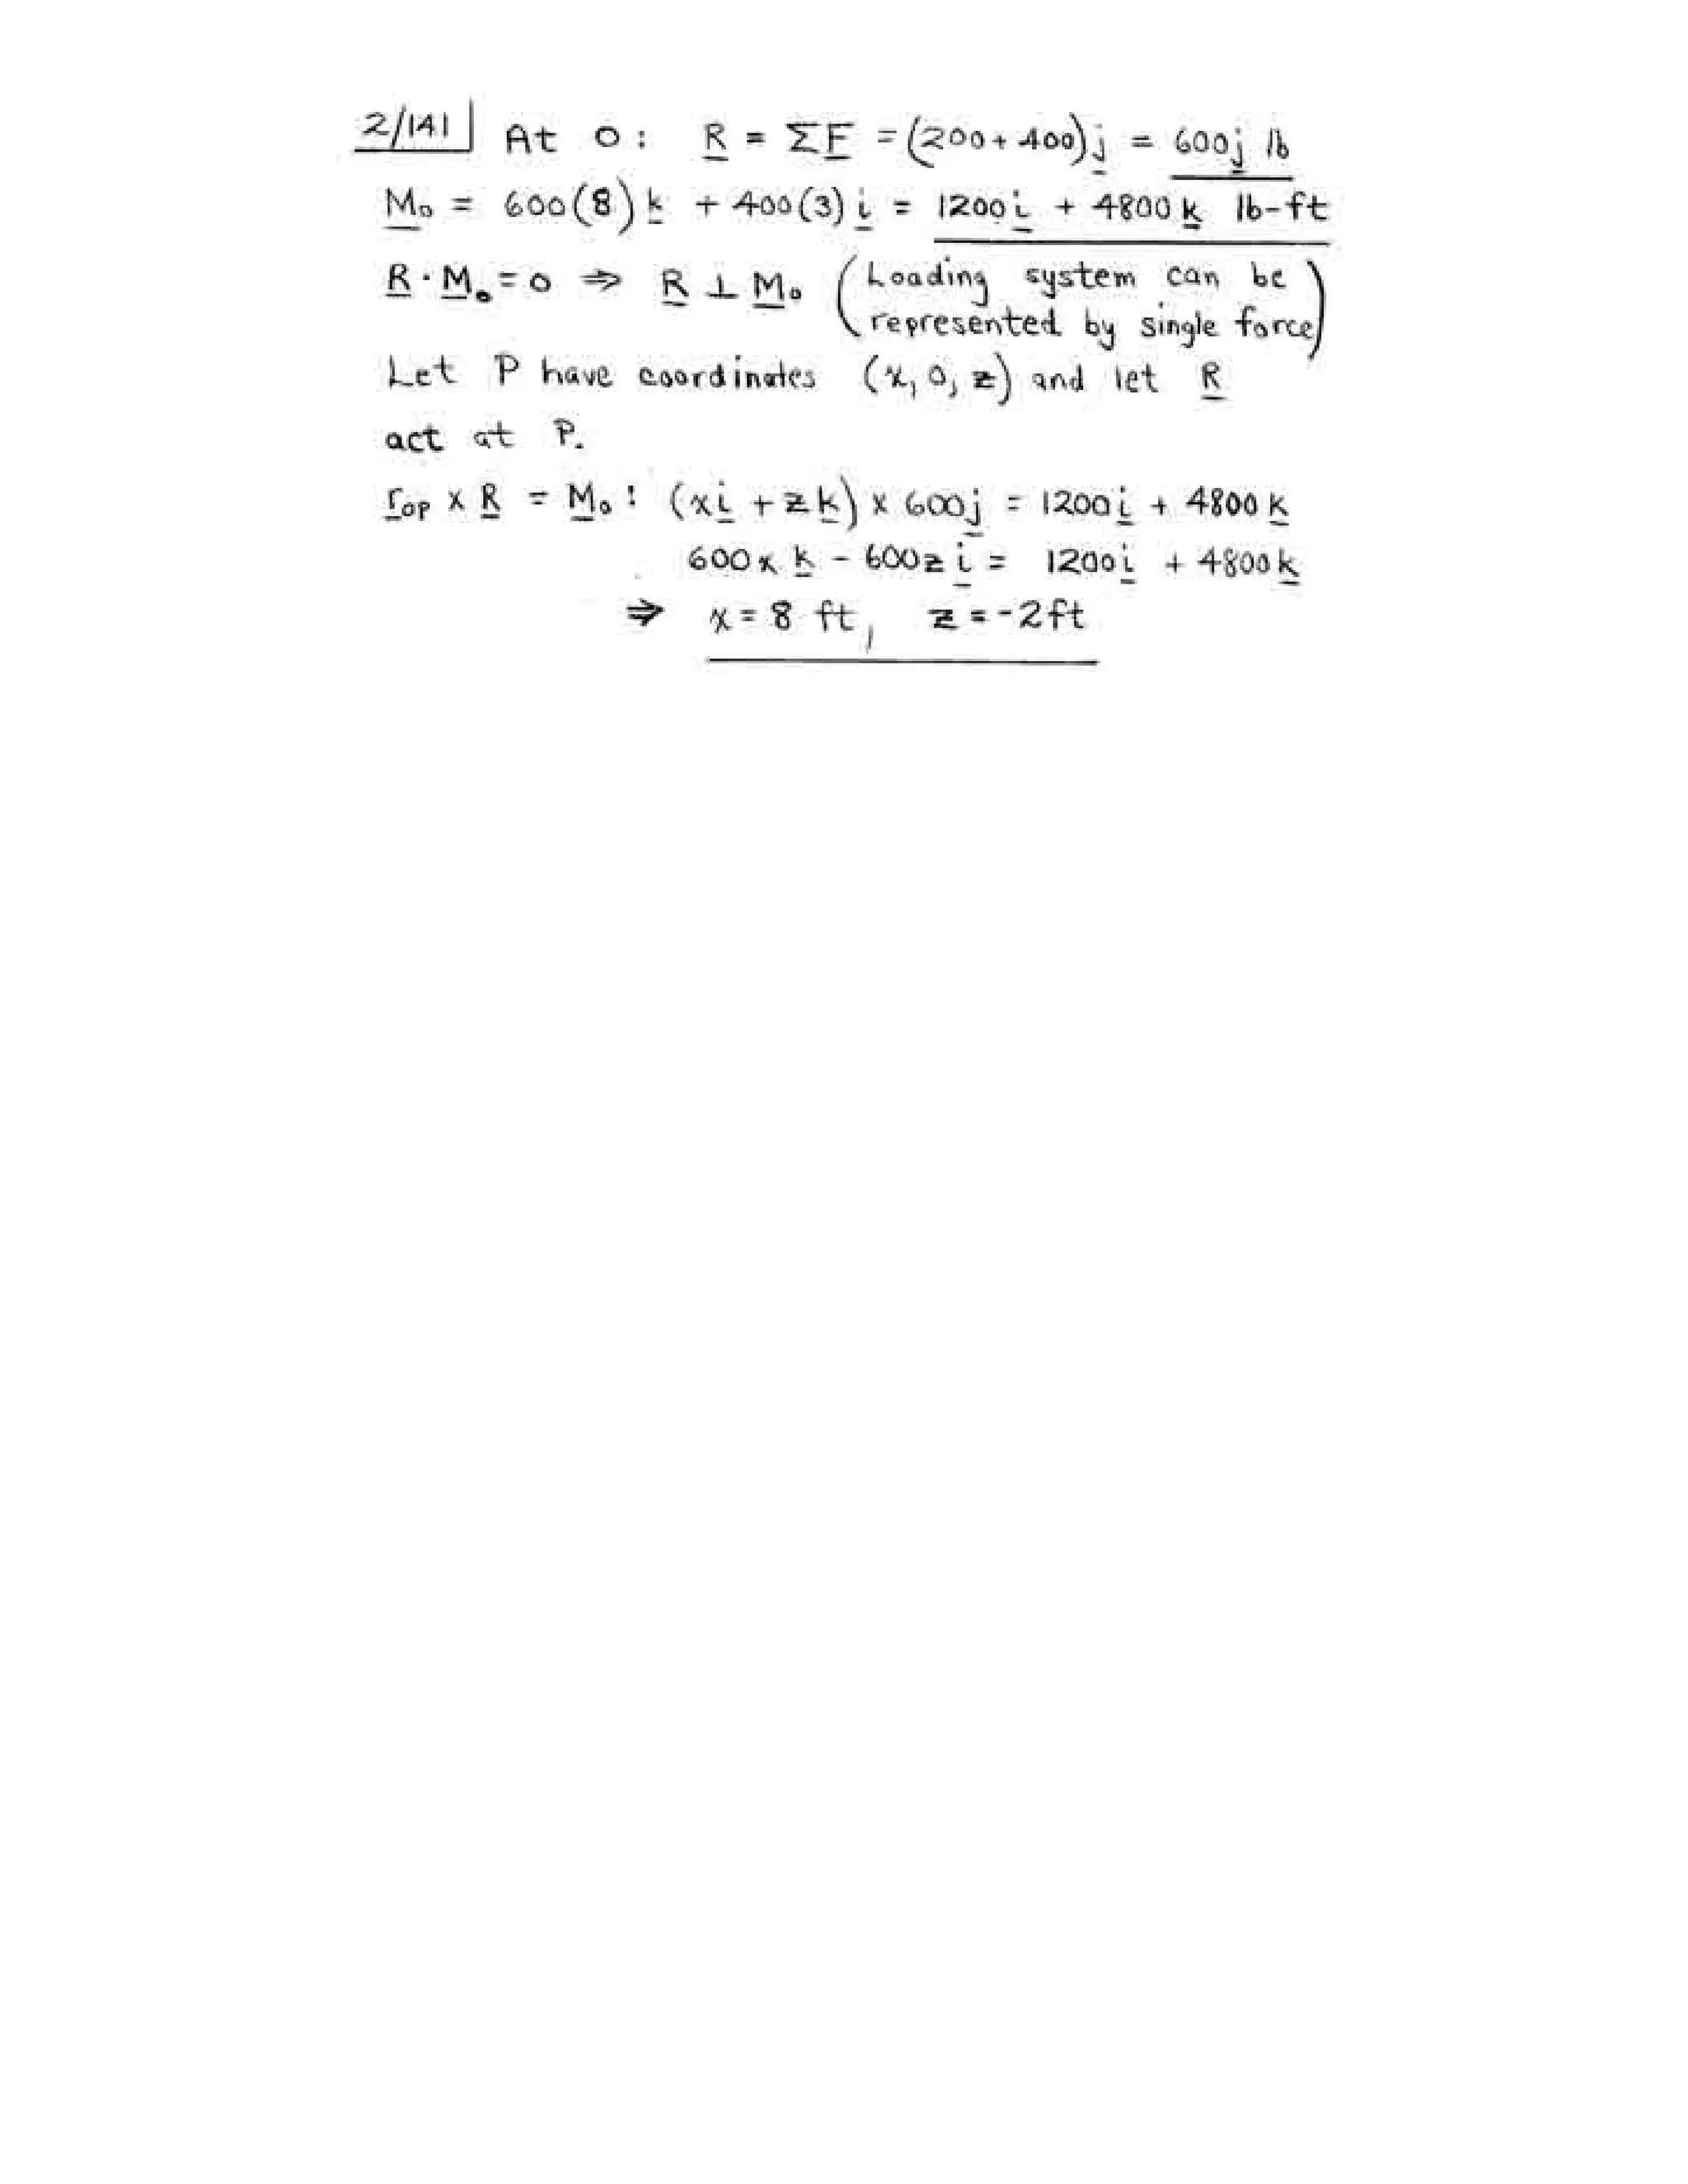 2/141 At O: R = ΣF = (200 + 400)j = 600j lb
Mo = 600(8)k + 400(3)i = 1200i + 4800k lb-ft
R · Mo = 0 ⇒ R ⊥ Mo (Loading system can be
represented by single force)
Let P have coordinates (x, 0, z) and let R
act at P.
rOP × R = Mo: (xi + zk) × 600j = 1200i + 4800k
600x k - 600z i = 1200i + 4800k
⇒ x = 8 ft, z = -2 ft